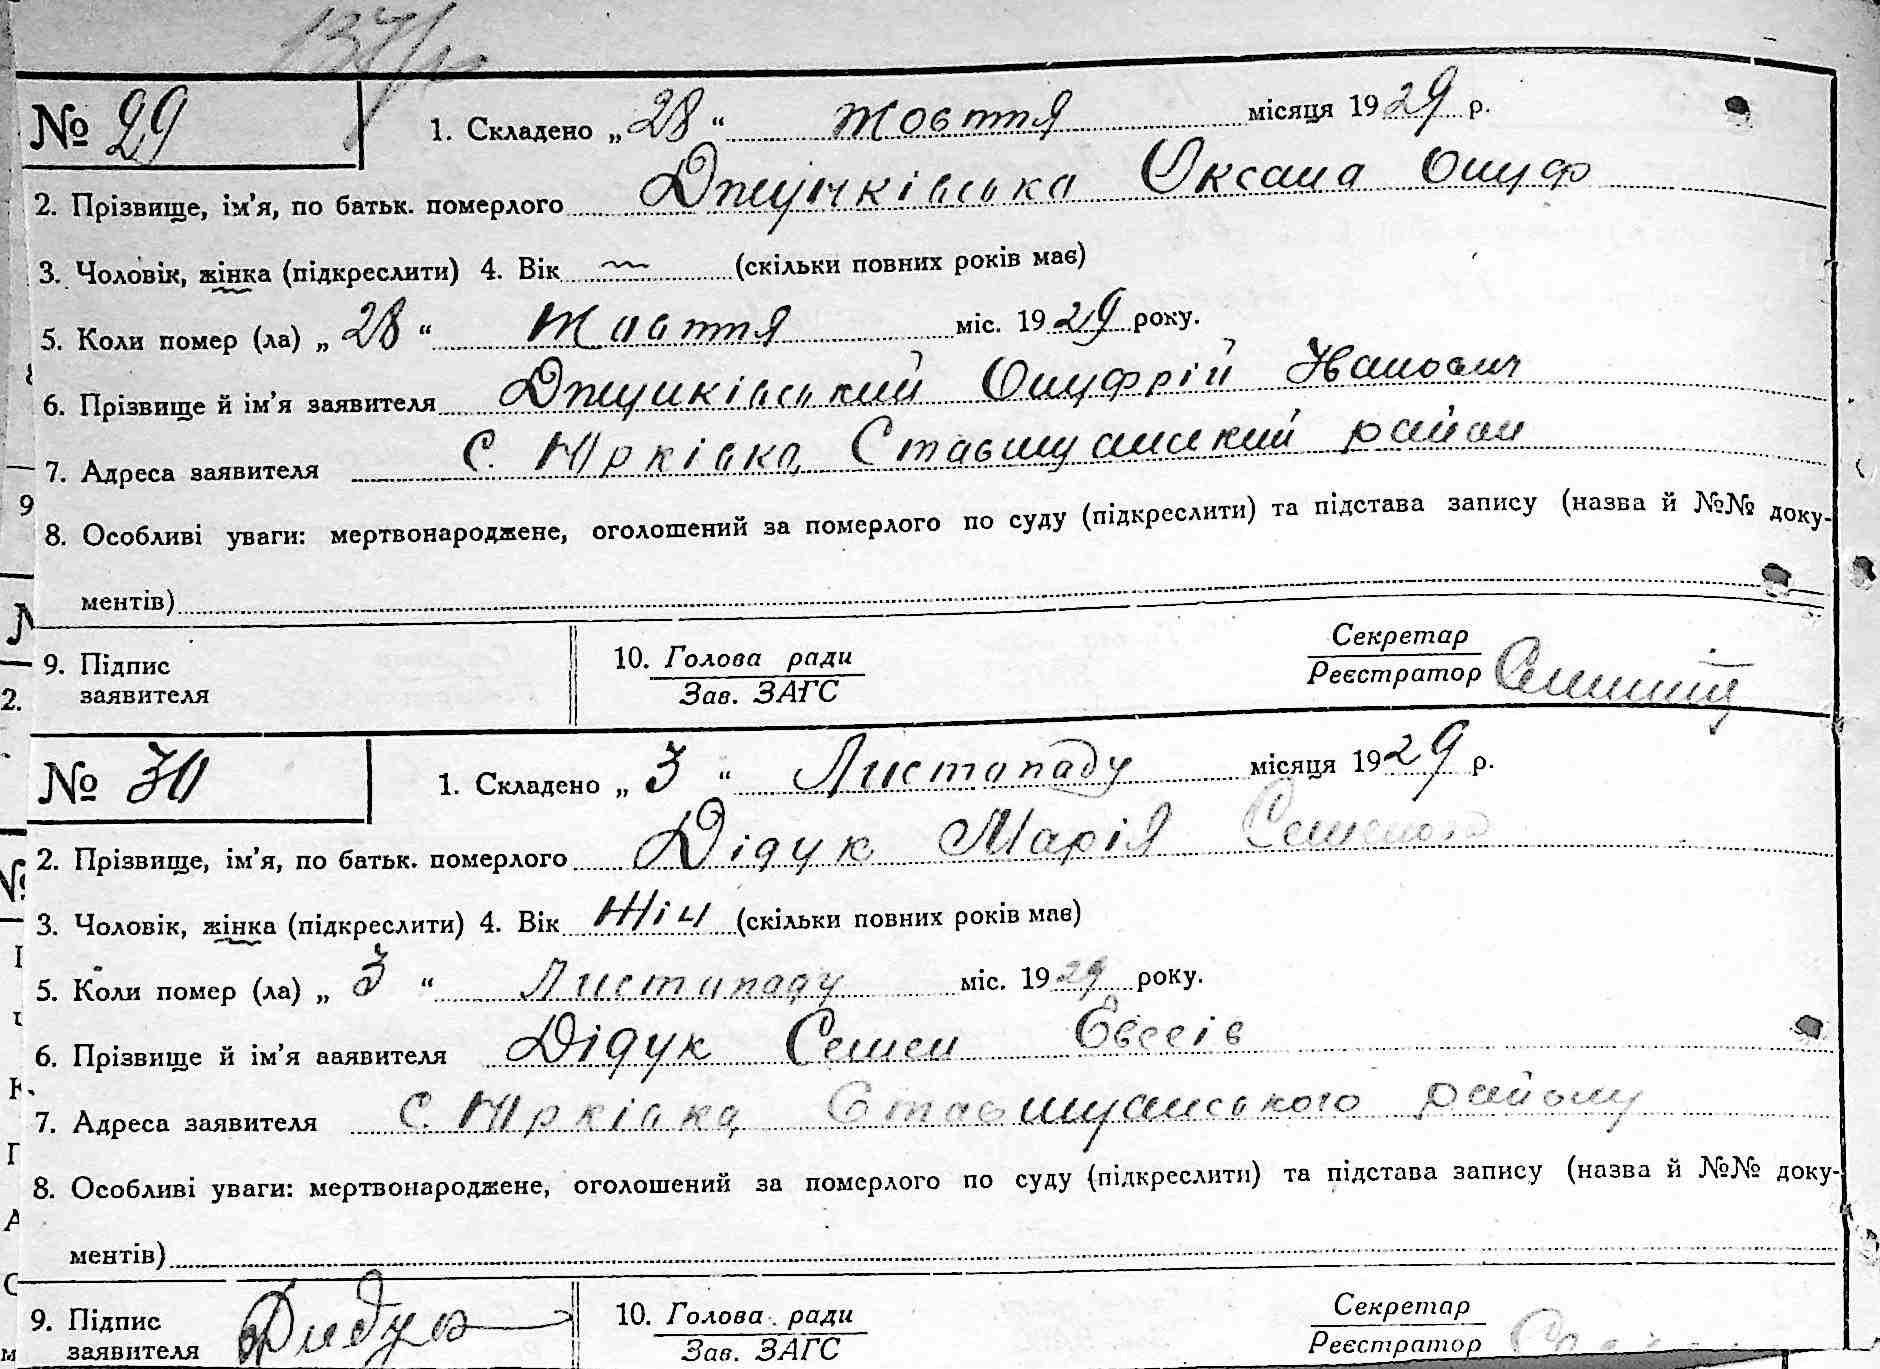 № 29
1. Складено „ 28 “ жовтня місяця 1929 р.
2. Прізвище, ім’я, по батьк. померлого Джунківська Оксана Онуф
3. Чоловік, жінка (підкреслити) 4. Вік (скільки повних років має)
5. Коли помер (ла) „ 28 “ жовтня міс. 1929 року.
6. Прізвище й ім’я заявителя Джунківський Онуфрій Іванович
7. Адреса заявителя с. Юрківка Ставищанський район
8. Особливі уваги: мертвонароджене, оголошений за померлого по суду (підкреслити) та підстава запису (назва й №№ доку-
ментів)
9. Підпис заявителя
10. Голова ради
Зав. ЗАГС
Секретар
Реєстратор
№ 30
1. Складено „ 3 “ Листопаду місяця 1929 р.
2. Прізвище, ім’я, по батьк. померлого Дідук Марія Семенова
3. Чоловік, жінка (підкреслити) 4. Вік жін (скільки повних років має)
5. Коли помер (ла) „ 3 “ Листопаду міс. 1929 року.
6. Прізвище й ім’я ааявителя Дідук Семен Евсеів
7. Адреса заявителя с. Юрківка Ставищанського району
8. Особливі уваги: мертвонароджене, оголошений за померлого по суду (підкреслити) та підстава запису (назва й №№ доку-
ментів)
9. Підпис заявителя Дидук
10. Голова ради
Зав. ЗАГС
Секретар
Реєстратор